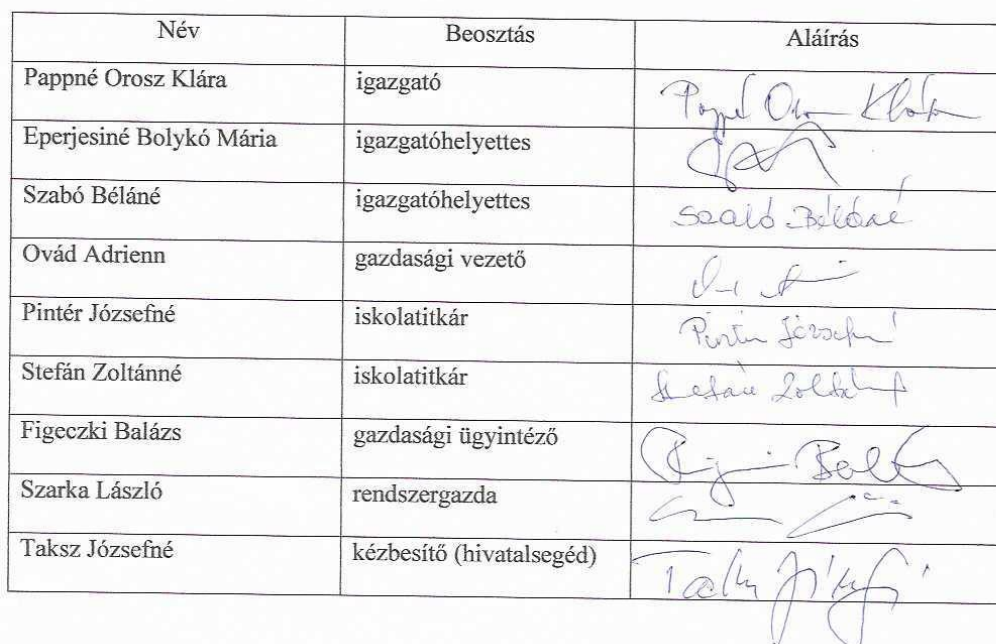 Név Beosztás Aláírás
Pappné Orosz Klára igazgató Pappné Orosz Klára
Eperjesiné Bolykó Mária igazgatóhelyettes
Szabó Béláné igazgatóhelyettes Szabó Béláné
Ovád Adrienn gazdasági vezető
Pintér Józsefné iskolatitkár Pintér Józsefné
Stefán Zoltánné iskolatitkár Stefán Zoltánné
Figeczki Balázs gazdasági ügyintéző
Szarka László rendszergazda
Taksz Józsefné kézbesítő (hivatalsegéd)